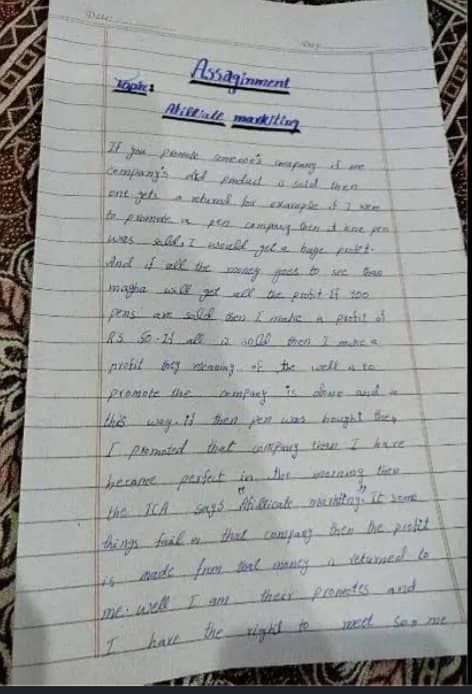 Date:
Day
Assaginment
Topic:
Afilliate markiting
If you promote someone's company if one
company's product is sold then
one gets a returned for example if I were
to promote a pen company then if one pen
was sold, I would get a huge profit.
And if all the money goes to
will get all the profit. If 100
pens are sold then I make a profit of
RS 50. If all is sold then I make a
profit they meaning of the well is to
promote the company is done and in
this way. if then pen was bought then
I promoted that company then I have
became perfect in the morning then
the says "Afillicate markiting". It some
things fail in that company then the profit
is made from that money is returned to
me. well I am their promotes and
I have the right to meet me